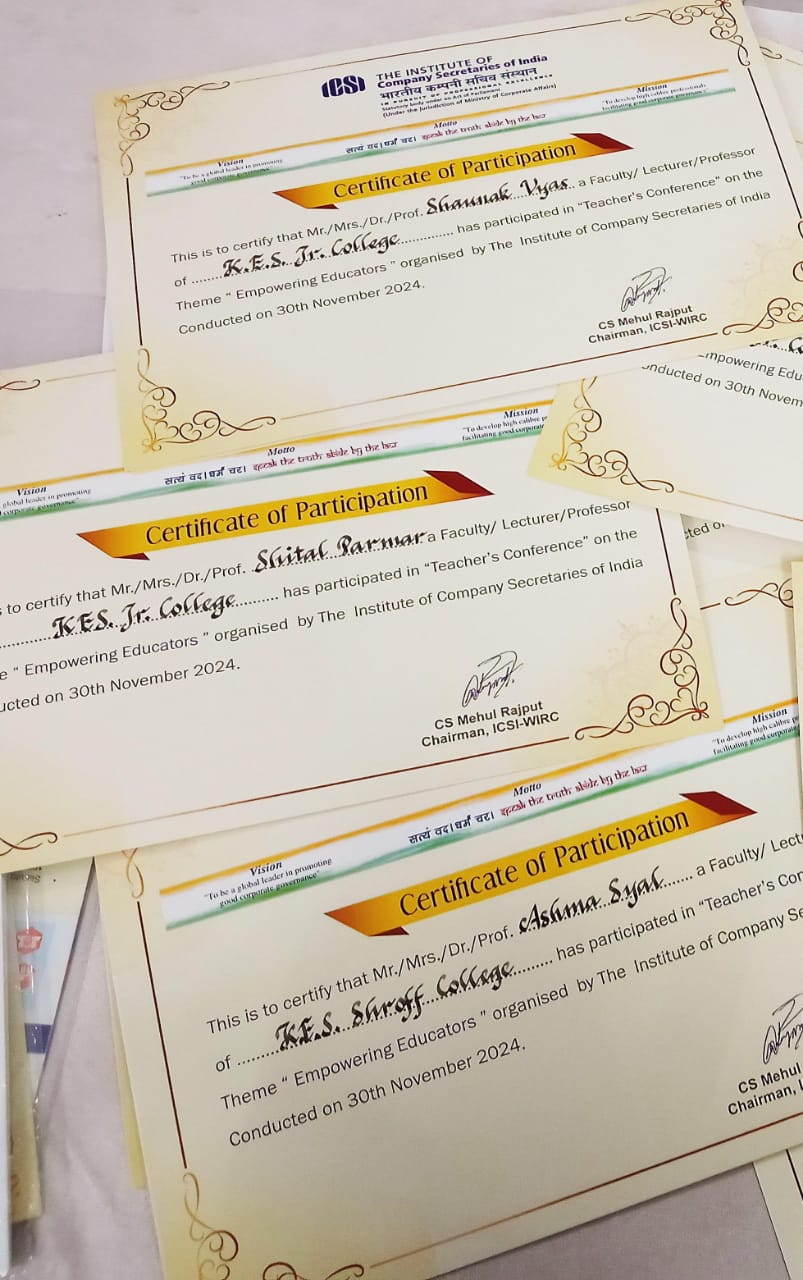 ICSI
THE INSTITUTE OF
Company Secretaries of India
भारतीय कम्पनी सचिव संस्थान
IN PURSUIT OF PROFESSIONAL EXCELLENCE
Statutory body under an Act of Parliament
(Under the jurisdiction of Ministry of Corporate Affairs)
Vision
"To be a global leader in promoting
good corporate governance"
Motto
सत्यं वद। धर्मं चर। speak the truth abide by the law
Mission
"To develop high calibre professionals
facilitating good corporate governance"
Certificate of Participation
This is to certify that Mr./Mrs./Dr./Prof. Shaunak Vyas.. a Faculty/ Lecturer/Professor
of ........K.E.S. Jr. College.............. has participated in “Teacher's Conference” on the
Theme “ Empowering Educators ” organised by The Institute of Company Secretaries of India
Conducted on 30th November 2024.
CS Mehul Rajput
Chairman, ICSI-WIRC
mpowering Edu
onducted on 30th Novem
Vision
global leader in promoting
corporate governance"
Motto
सत्यं वद। धर्मं चर। speak the truth abide by the law
Mission
"To develop high calibre p
facilitating good corporate
Certificate of Participation
s to certify that Mr./Mrs./Dr./Prof. Shital Parmar a Faculty/ Lecturer/Professor
............KES. Jr. College.......... has participated in “Teacher's Conference” on the
e “ Empowering Educators ” organised by The Institute of Company Secretaries of India
ucted on 30th November 2024.
CS Mehul Rajput
Chairman, ICSI-WIRC
cted o
Vision
"To be a global leader in promoting
good corporate governance"
Motto
सत्यं वद। धर्मं चर। speak the truth abide by the law
Mission
"To develop high calibre p
facilitating good corporate
Certificate of Participation
This is to certify that Mr./Mrs./Dr./Prof. Ashma Syal....... a Faculty/ Lectu
of ..........K.E.S. Shroff College.......... has participated in “Teacher's Con
Theme “ Empowering Educators ” organised by The Institute of Company Se
Conducted on 30th November 2024.
CS Mehul
Chairman, I